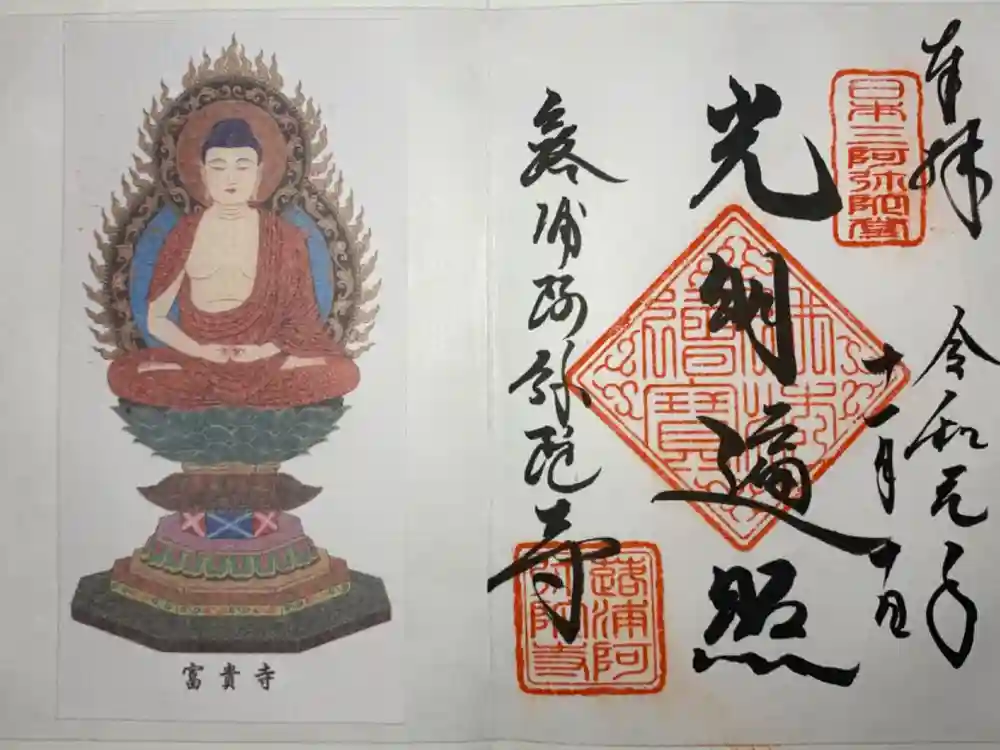 奉拝
日本三阿弥陀堂
令和元年
十一月十日
光明遍照
蕗浦阿弥陀寺
蕗浦阿弥陀寺
富貴寺